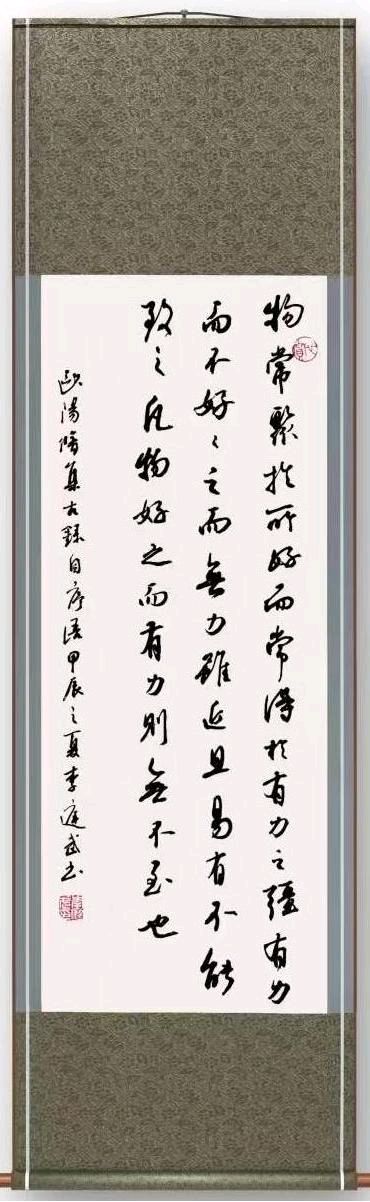 物常聚於所好而常得於有力之彊有力
而不好〻之而無力雖近且易有不能
致之凡物好之而有力則無不至也
歐陽脩集古錄自序語甲辰之夏李庭武书